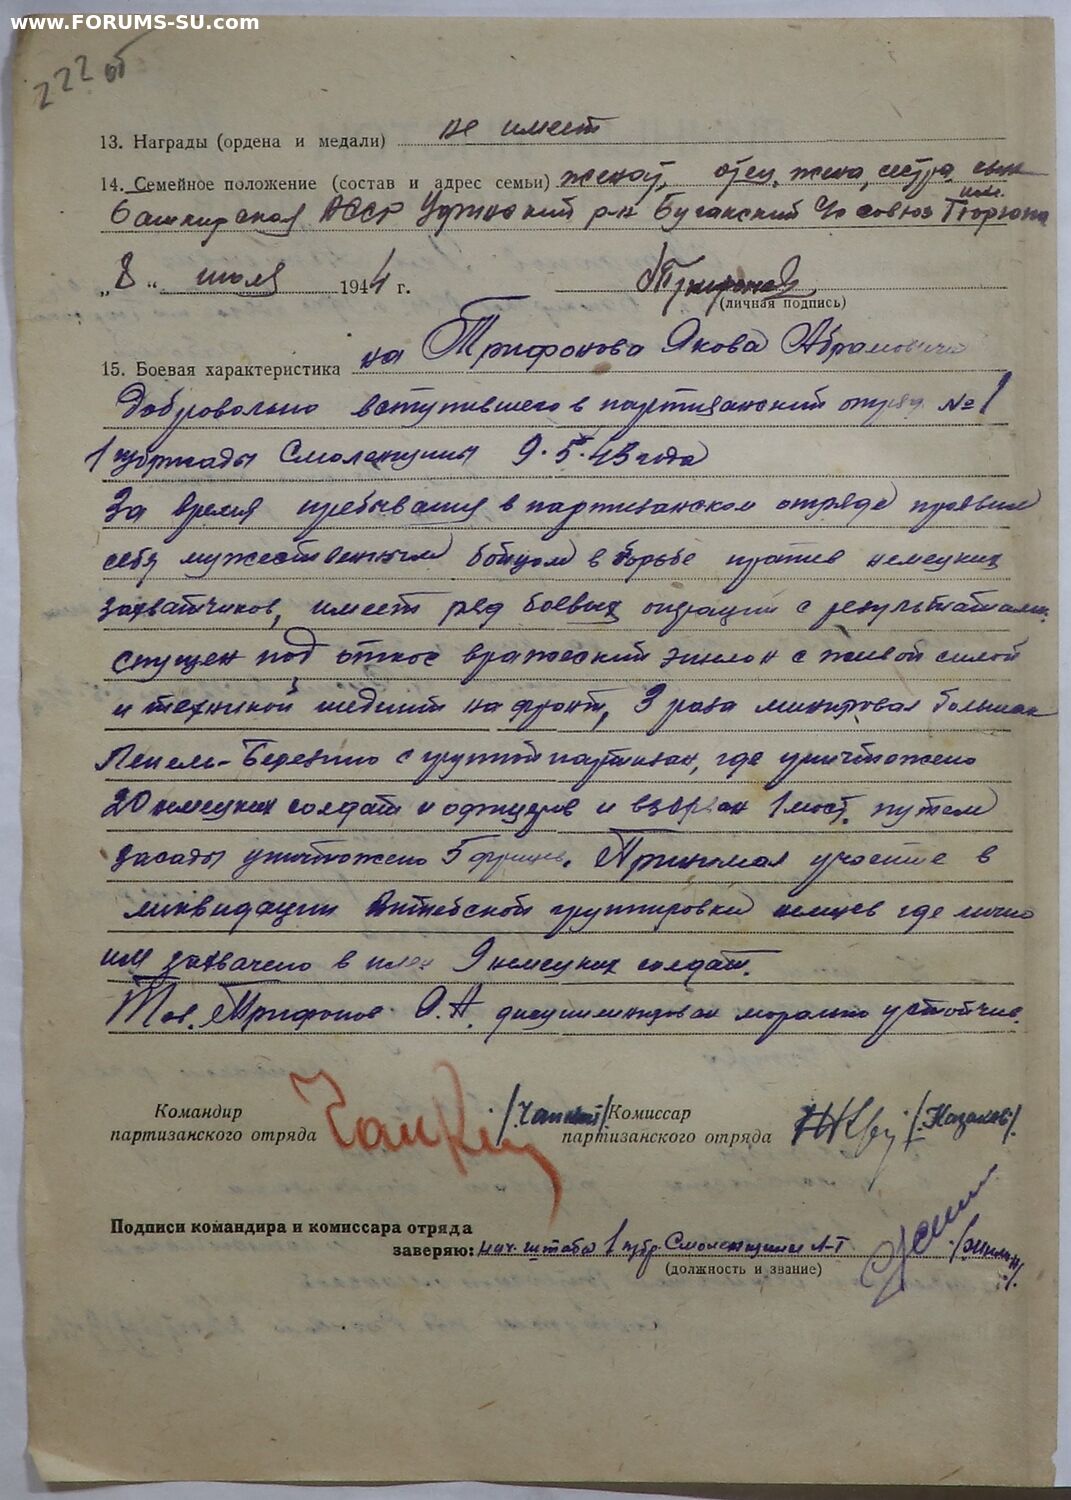 www.FORUMS-SU.com
222 об
13. Награды (ордена и медали) не имеет
14. Семейное положение (состав и адрес семьи) женат, отец, жена, сестра, сын
Башкирская АССР р-н
"8" июля 1944 г.
(личная подпись)
15. Боевая характеристика на Трифонова Якова Абрамовича
Добровольно вступившего в партизанский отряд № 1
1 п/бригады Смоленщины 9.5.43 года
За время пребывания в партизанском отряде проявил
себя мужественным бойцом в борьбе против немецких
захватчиков, имеет ряд боевых операций с результатами:
спущен под откос вражеский эшелон с живой силой
и техникой шедший на фронт, 3 раза минировал большак
Лепель-Березино с группой партизан, где уничтожено
20 немецких солдат и офицеров и взорван 1 мост, путем
засады уничтожено 5 фрицев. Принимал участие в
ликвидации Витебской группировки немцев где лично
им захвачено в плен 9 немецких солдат.
Тов. Трифонов Я.А. дисциплинирован морально устойчив.
Командир партизанского отряда /Чапский/ Комиссар партизанского отряда /Казаков/.
Подписи командира и комиссара отряда
заверяю: нач. штаба 1 п/бр. Смоленщины Л-т
(должность и звание)